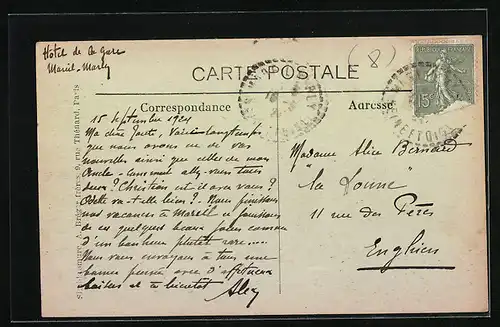 Hôtel de la gare
Mareil-Marly
(8)
CARTE POSTALE
Correspondance
Adresse
REPUBLIQUE FRANÇAISE
15c
15 Septembre 1921
Ma chère voici longtemps
que nous avons eu de vos
nouvelles ainsi que celles de mon
Oncle - comment allez-vous tous
deux? Christian est-il avec vous?
Odette va-t-elle bien? Nous finissons
nos vacances à Mareil et jouissons
de ces quelques beaux jours comme
d'un bonheur plutôt rare....
Nous vous envoyons à tous une
bonne pensée avec d'affectueux
baisers et à bientôt Alex
Madame Alice Bernard
"La
11 rue des Pères
Enghien
rue Thénard, Paris